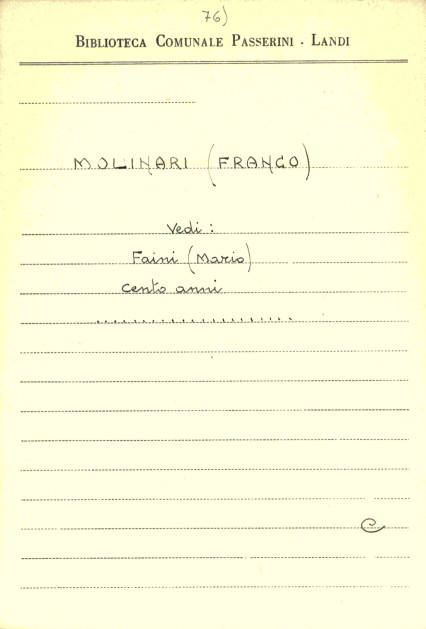 76)
BIBLIOTECA COMUNALE PASSERINI - LANDI
MOLINARI (FRANCO)
Vedi :
Faini (Mario)
Cento anni
....................
C